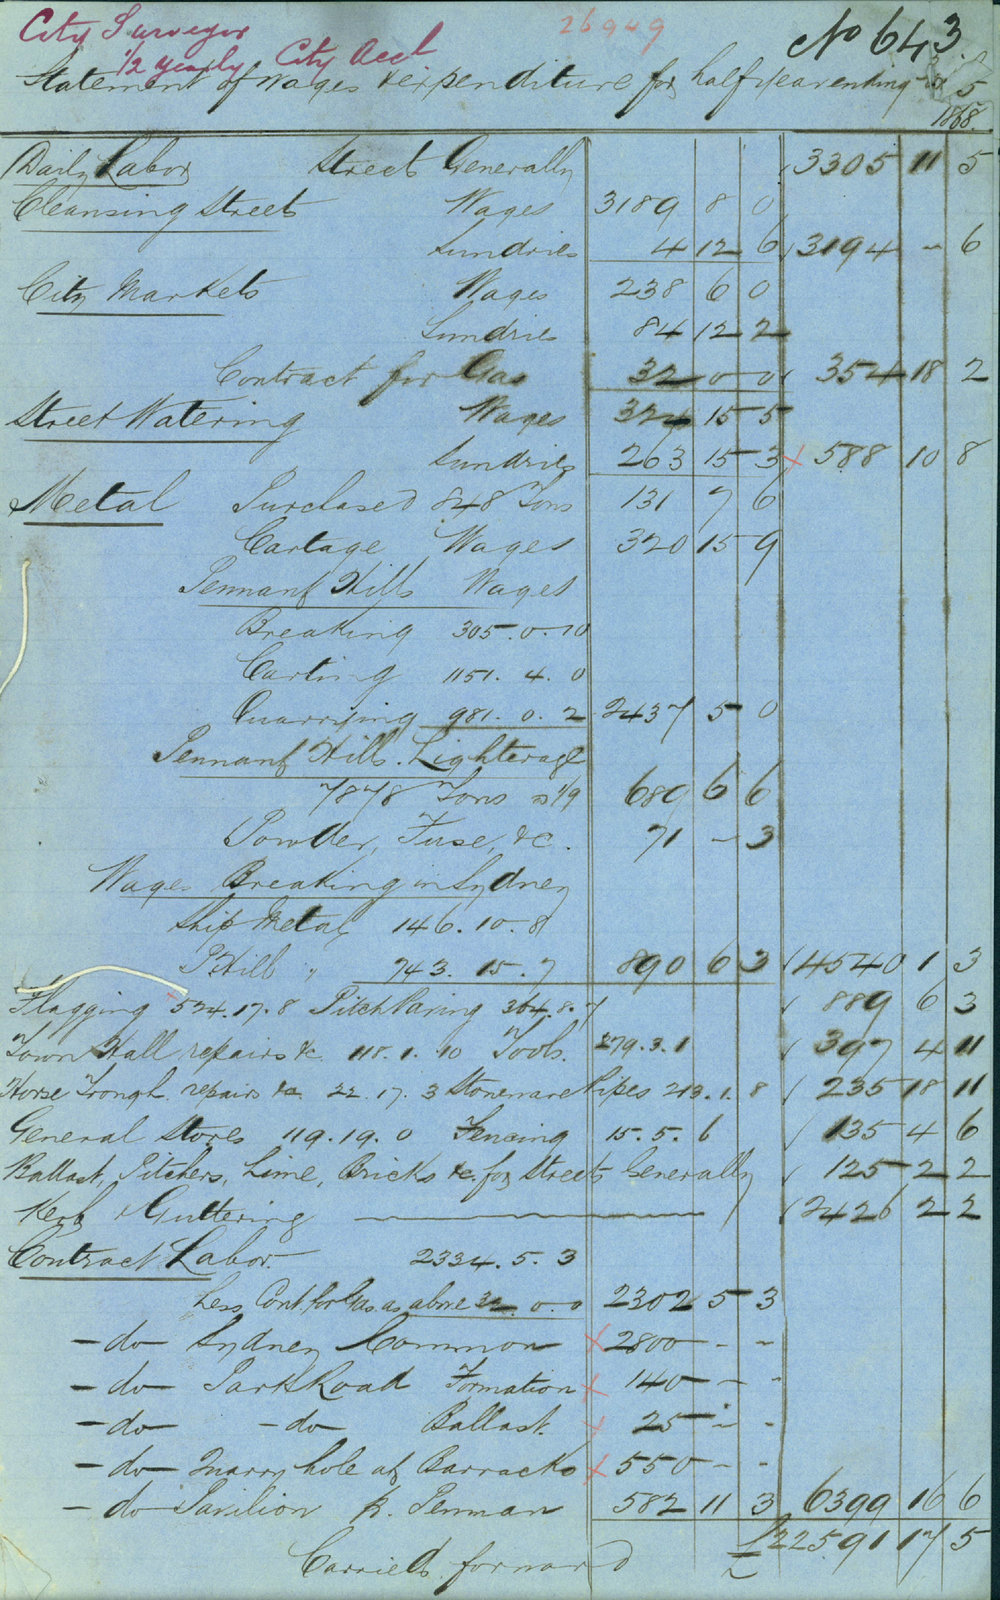 City Surveyor 26949 No 643
1/2 yearly City Acct
Statement of Wages & expenditure for half year ending 5
1868.
Daily Labor Street Generally 3305 11 5
Cleansing Street Wages 3189 8 0
Sundries 4 12 6 3194 - 6
City Markets Wages 238 6 0
Sundries 84 12 2
Contract for Gas 32 0 0 354 18 2
Street Watering Wages 324 15 5
Sundries 263 15 3 x 588 10 8
Metal Purchased 848 Tons 131 7 6
Cartage Wages 320 15 9
Pennant Hills Wages
Breaking 305.0.10
Carting 1151.4.0
Quarrying 981.0.2 2437 5 0
Pennant Hills. Lighterage
7878 Tons @ 1/9 689 6 6
Powder, Fuse, &c. 71 - 3
Wages Breaking in Sydney
Ship Metal 146.10.8
P Hill " 743.15.7 890 6 3 4540 1 3
Flagging x 524.17.8 Pitch Paving 364.8.7 889 6 3
Town Hall repairs &c. 118.1.10 Tools. 279.3.1 397 4 11
Horse Trough repairs &c 22.17.3 Stoneware Pipes 213.1.8 235 18 11
General Stores 119.19.0 Fencing 15.5.6 135 4 6
Ballast, Pitchers, Lime, Bricks &c. for Streets Generally 125 2 2
Kerb & Guttering 2426 2 2
Contract Labor. 2334.5.3
Less Cont. for Gas as above 32.0.0 2302 5 3
- do - Sydney Common x 2800 - -
- do - Park Road Formation x 140 - -
- do - - do - Ballast. x 25 - -
- do - Quarry hole at Barracks x 550 - -
- do Pavilion P. Penman 582 11 3 6399 16 6
Carried forward £22591 17 5